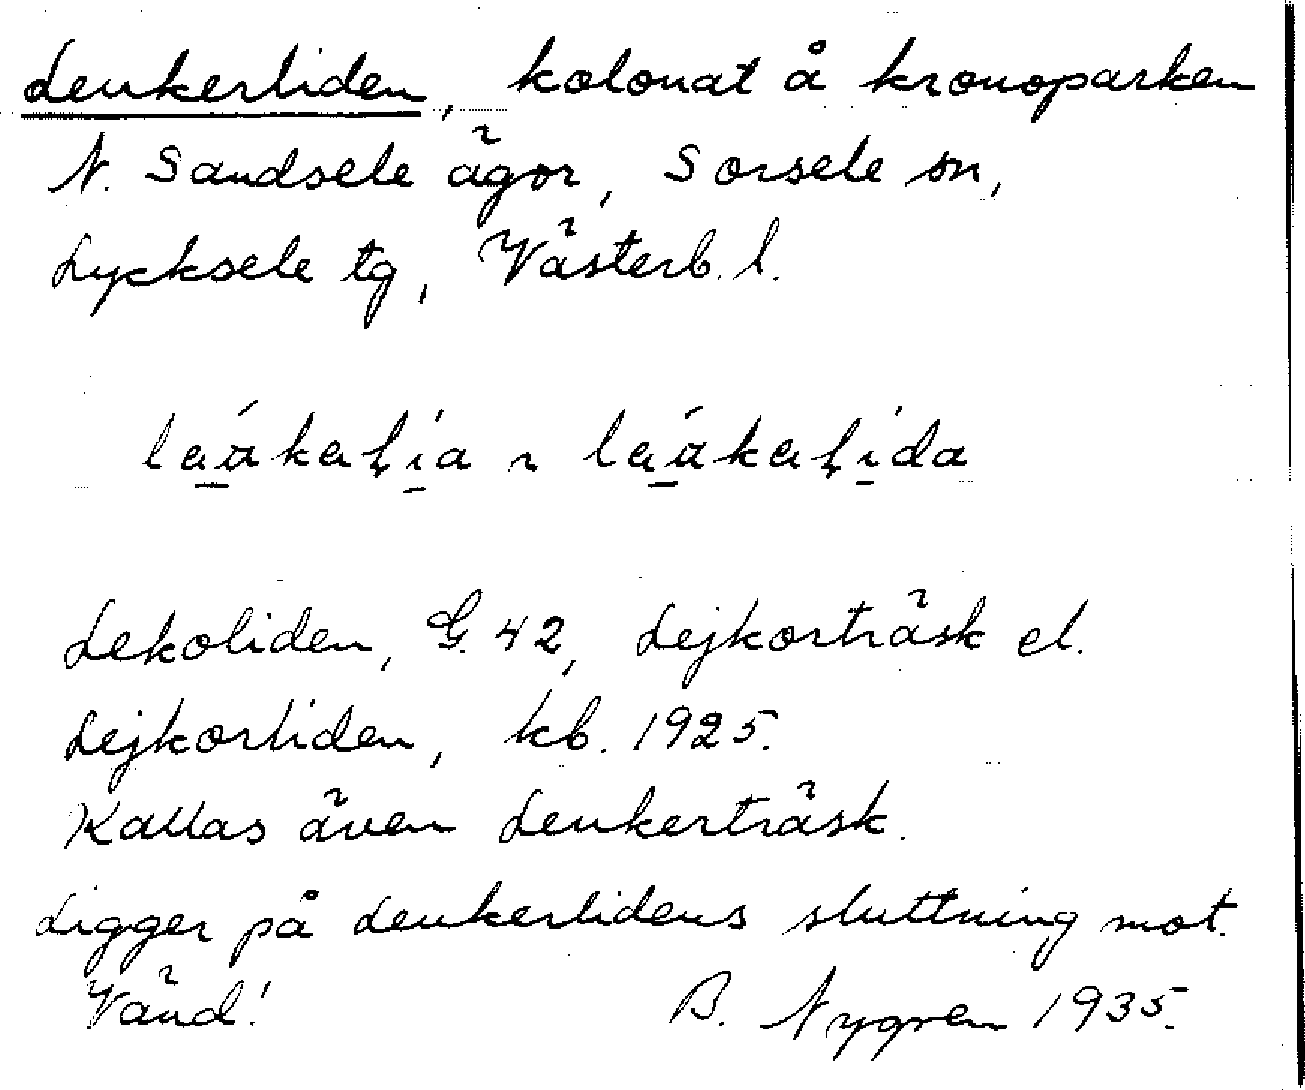 Leukerliden, kolonat å kronoparken
N. Sandsele ägor, Sorsele sn,
Lycksele tg, Västerb. l.
Lekoliden, G. 42, Lejkorträsk el.
Lejkorliden, kb. 1925.
Kallas även Leukerträsk.
Ligger på Leukerlidens sluttning mot.
Vänd! B. Nygren 1935.